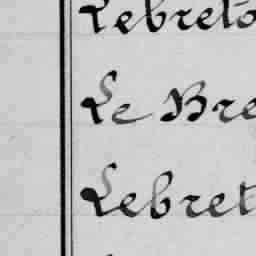 Lebreto
Le Bre
Lebret